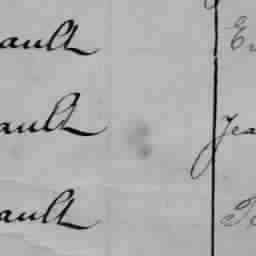 ault E
ault Jea
ault